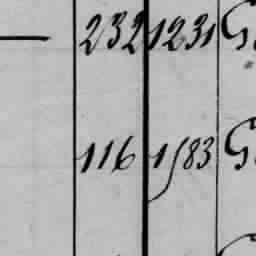 232 1231 G
116 1583 G